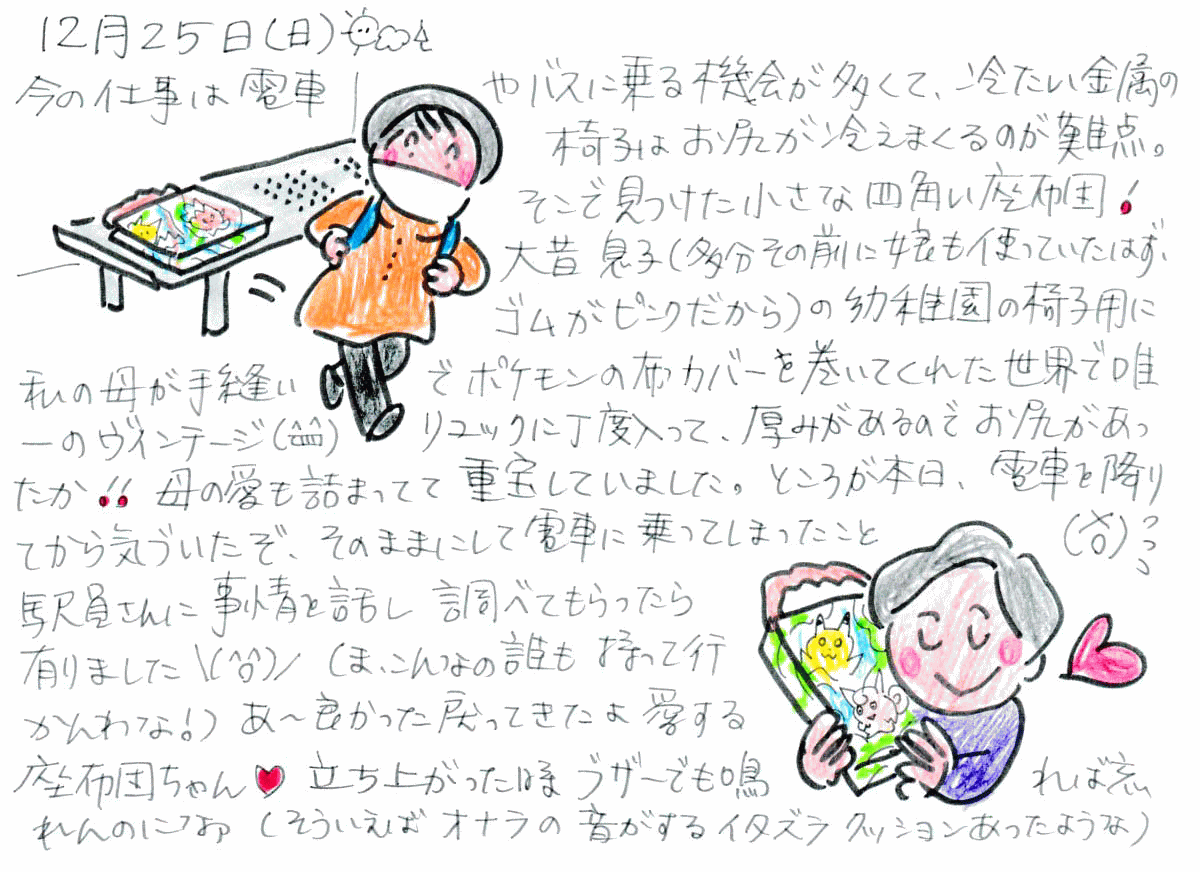 12月25日(日)
今の仕事は電車やバスに乗る機会が多くて、冷たい金属の
椅子はお尻が冷えまくるのが難点。
そこで見つけた小さな四角い座布団!
大昔 息子(多分その前に娘も使っていたはず、
ゴムがピンクだから)の幼稚園の椅子用に
私の母が手縫いでポケモンの布カバーを巻いてくれた世界で唯
一のヴィンテージ(^皿^) リュックに丁度入って、厚みがあるのでお尻があっ
たか!! 母の愛も詰まってて重宝していました。ところが本日、電車を降り
てから気づいたぞ、そのままにして電車に乗ってしまったこと
駅員さんに事情を話し調べてもらったら
有りました\(^o^)/ (ま、こんなの誰も持って行
かんわな!) あ〜良かった戻ってきたよ愛する
座布団ちゃん♥ 立ち上がった時ブザーでも鳴れば忘
れんのになぁ (そういえばオナラの音がするイタズラクッションあったような)